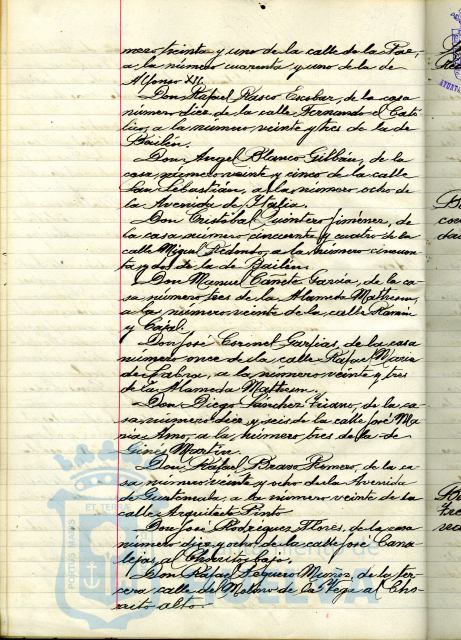 mero treinta y uno de la calle de la Paz,
a la número cuarenta y uno de la de
Alfonso XII.
Don Rafael Rasco Escobar, de la casa
número diez de la calle Fernando el Cató
lico, a la número veinte y tres de la de
Bailén.
Don Angel Blanco Gilbán, de la
casa número veinte y cinco de la calle
San Sebastián, a la número ocho de
la Avenida de Italia.
Don Cristóbal Quintero Jiménez, de
la casa número cincuenta y cuatro de la
calle Miguel Redondo, a la número cincuen
ta y dos de la de Bailén.
Don Manuel Cañete García, de la ca
sa número tres de la Alameda Matheson,
a la número veinte de la calle Ramón
y Cajal.
Don José Coronel Garfias, de la casa
número once de la calle Rafael María
de Labra, a la número veinte y tres
de la Alameda Matheson.
Don Diego Sánchez Triano, de la ca
sa número diez y seis de la calle José Ma
ria Amo, a la número tres de la de
Ginés Martín.
Don Rafael Bravo Romero, de la ca
sa número veinte y ocho de la Avenida
de Guatemala, a la número veinte de la
calle Arquitecto Pinto.
Don José Rodríguez Flores, de la casa
número diez y ocho de la calle José Cana
lejas, al Chorrito bajo.
Don Rafael Seguero Muñoz, de la ter
cera calle de Molino de la Vega al Cho
rrito alto.
PORTUS MARIS
ET TERRAE
Ayuntamiento de
HUELVA